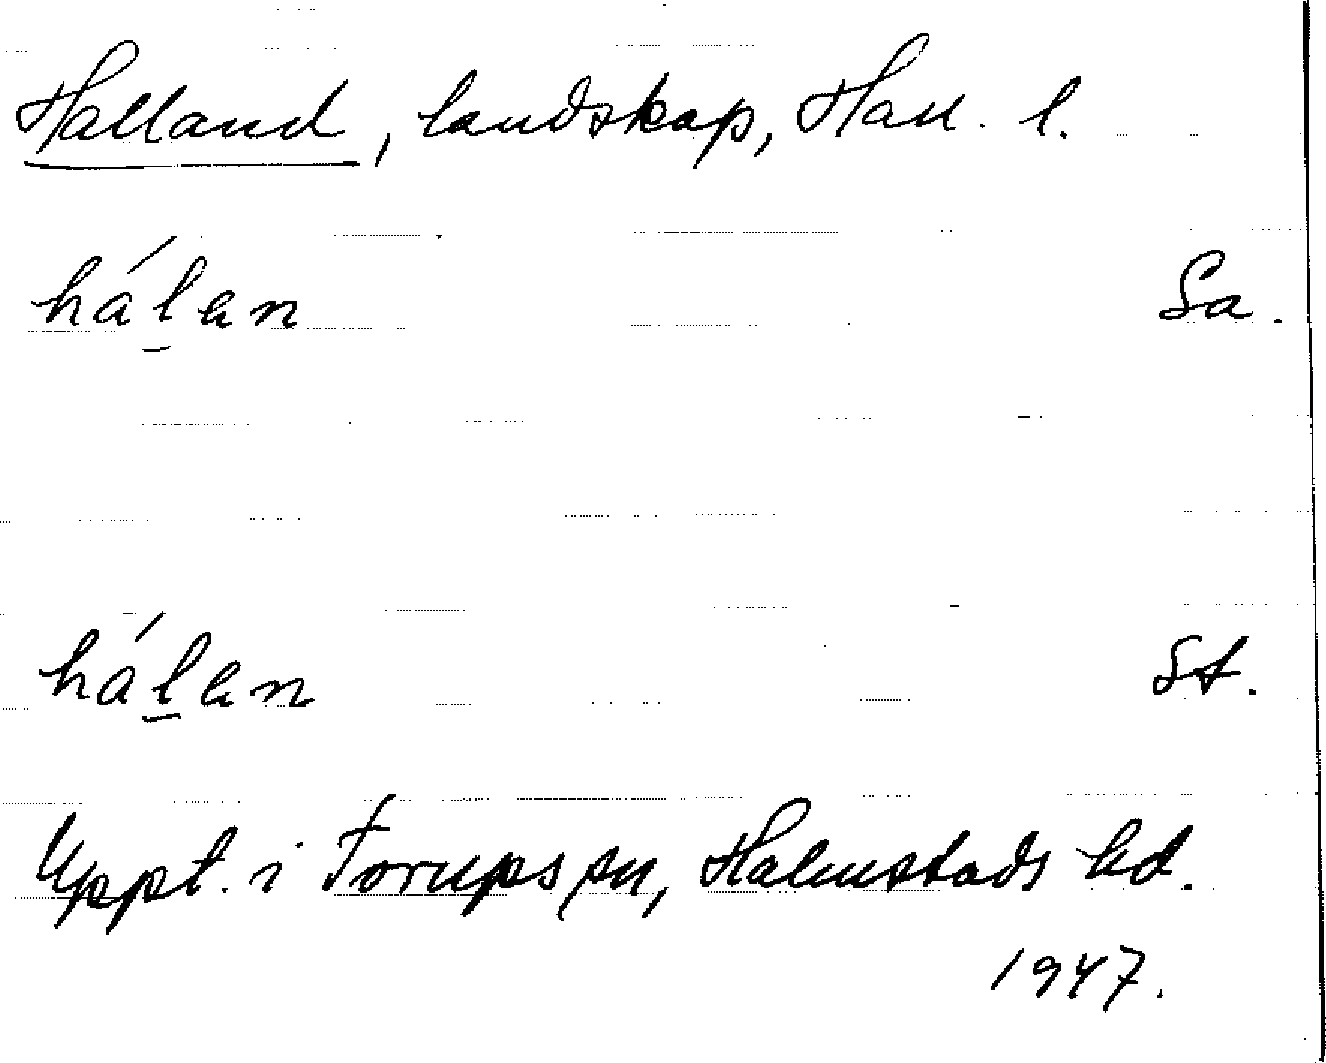 Halland, landskap, Hall. l.
hál̠an Sa.
hál̠an St.
Uppt. i Torups sn, Halmstads hd.
1947.